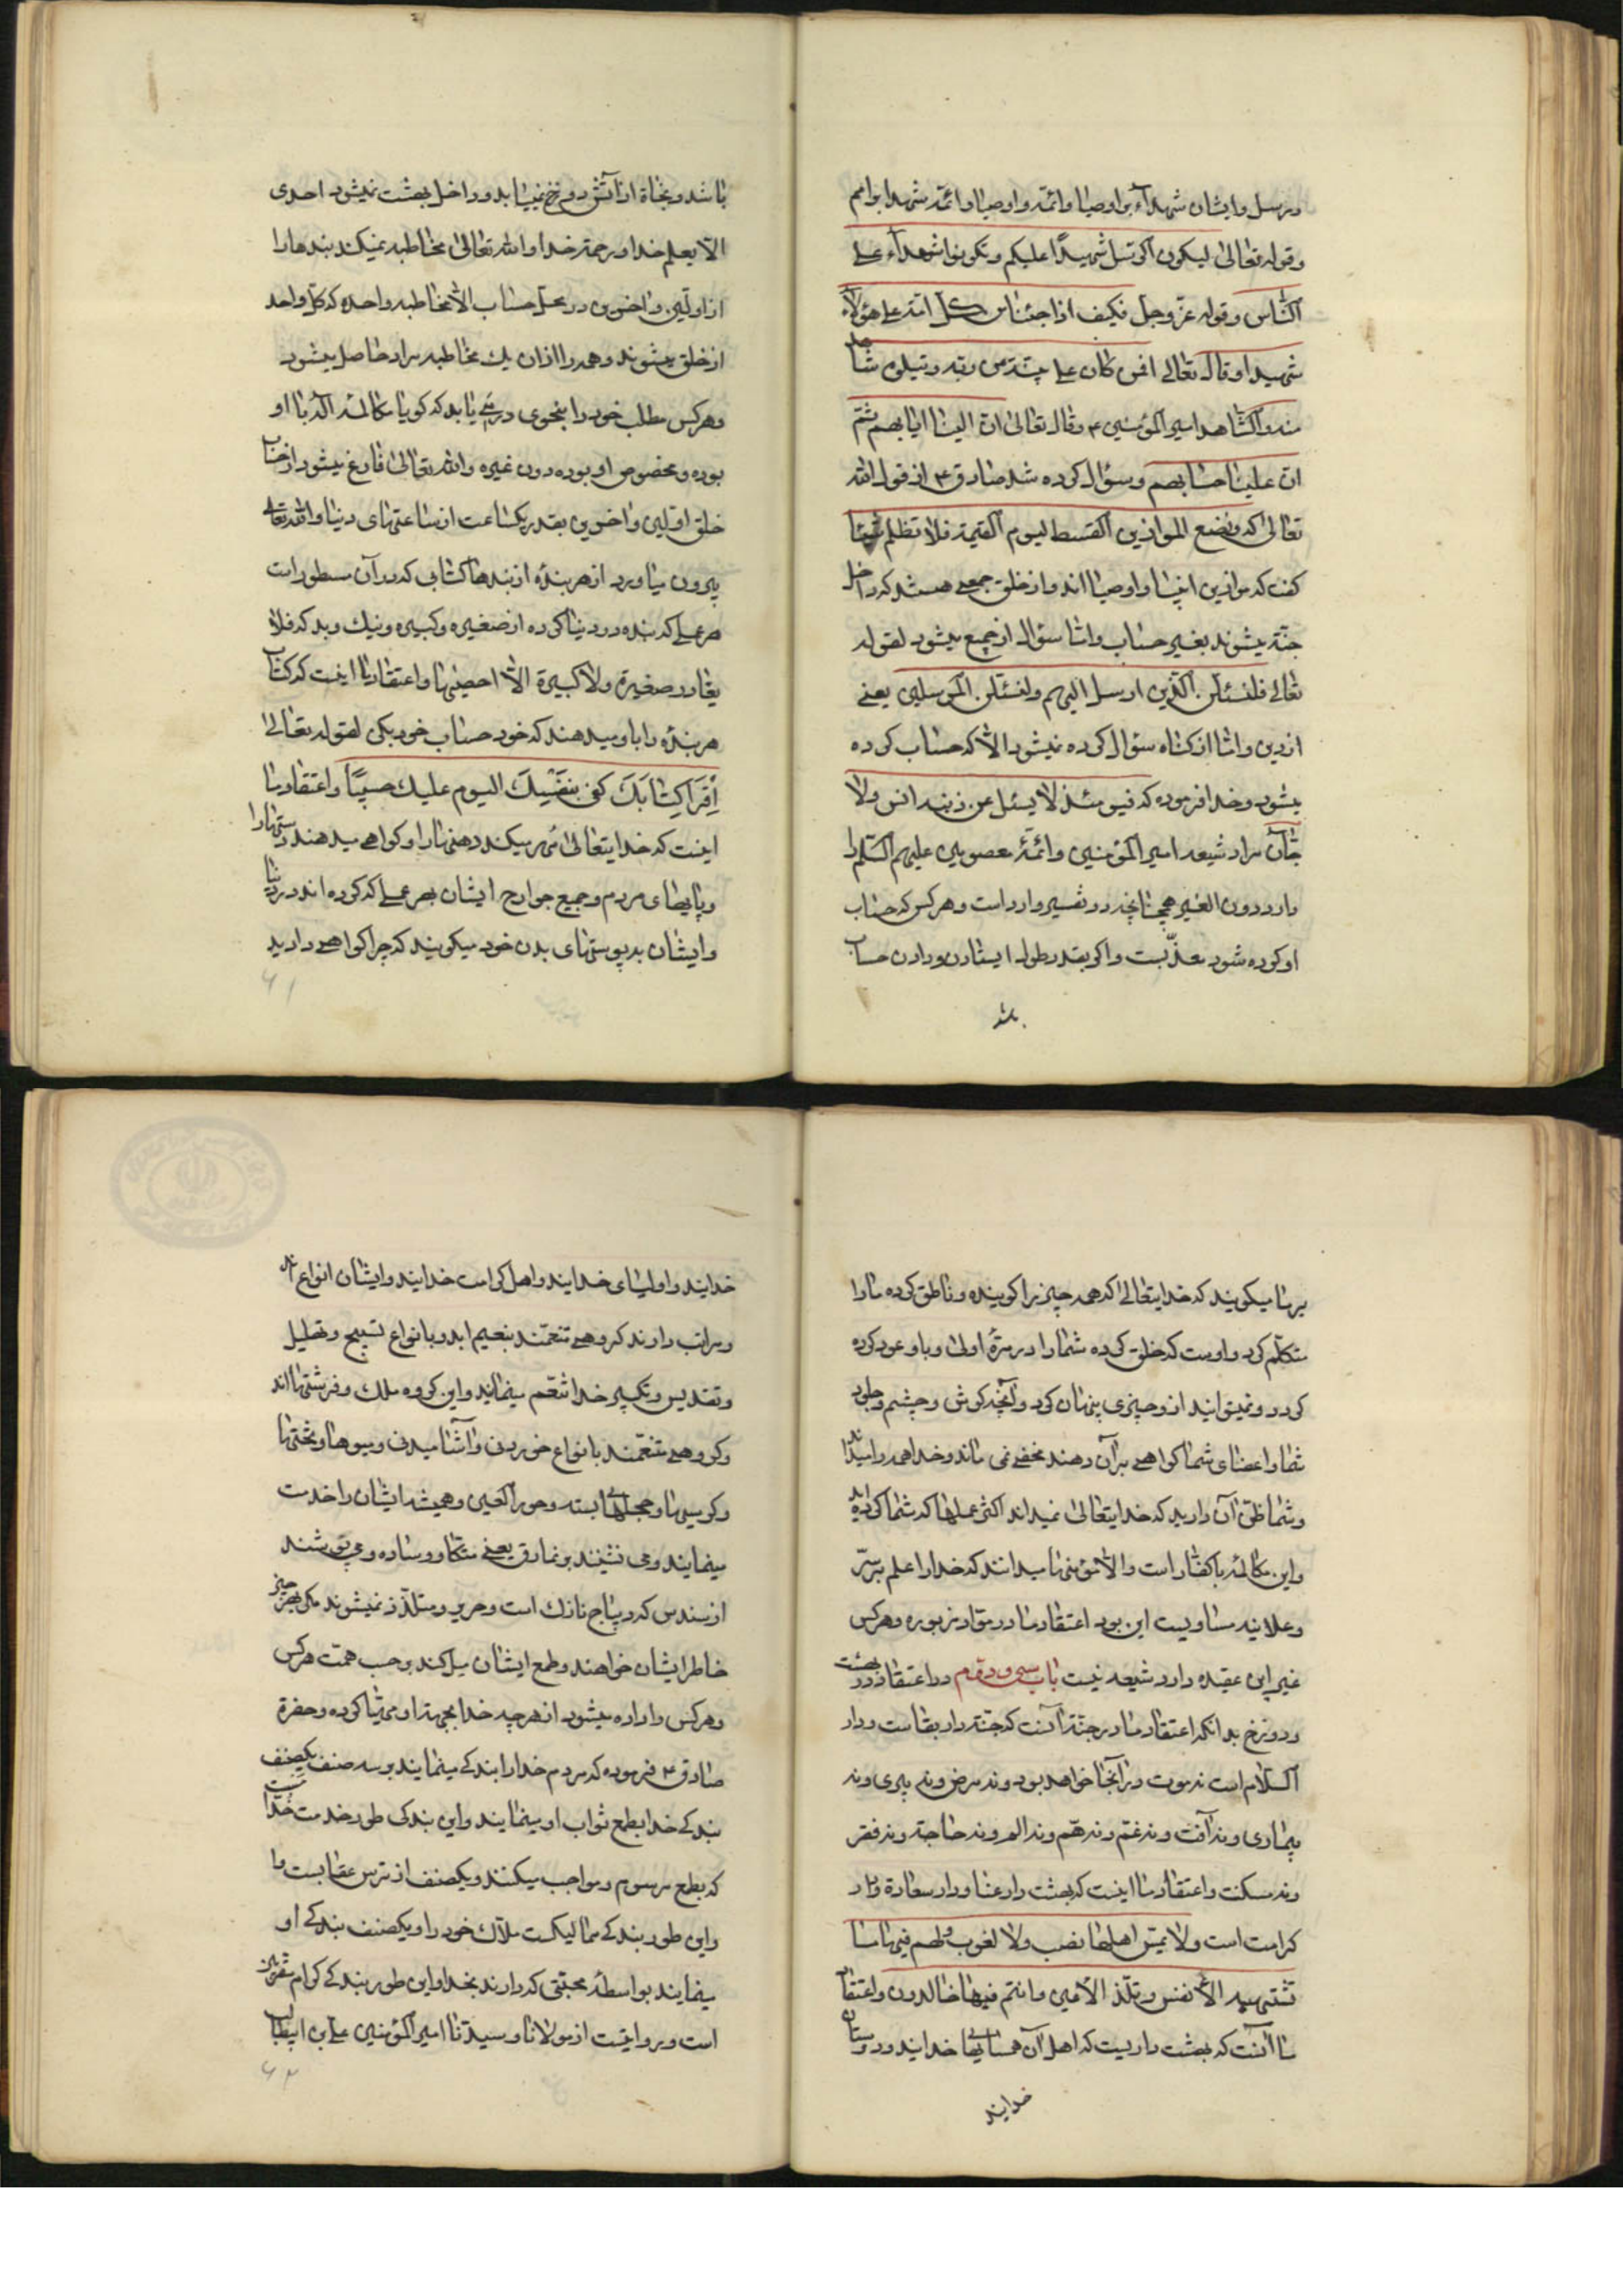 و رسل و ایشان شهداء بر اوصیا و ائمه و اوصیا و ائمه شهدا بر امم
و قوله تعالی لیکون الرسل شهیدا علیکم و تکونوا شهداء علی
الناس و قوله عز وجل فکیف اذا جئنا من کل امة علی هؤلاء
شهیدا و قال تعالی افمن کان علی بینة من ربه و یتلوه شاهد
منه و الشاهد امیر المؤمنین ع و قال تعالی ان الینا ایابهم ثم
ان علینا حسابهم و سؤال کرده شد صادق ع از قول الله
تعالی که و نضع الموازین القسط لیوم القیمة فلا تظلم شیئا
گفت که موازین انبیا و اوصیا اند و از خلق جمعی هستند که داخل
جنة میشوند بغیر حساب و اما سؤال از جمیع میشود لقوله
تعالی فلنسئلن الذین ارسل الیهم و لنسئلن المرسلین یعنی
از دین و اما از گناه سؤال کرده نمیشود الا که حساب کرده
میشود و خدا فرموده که فیومئذ لا یسئل عن ذنبه انس ولا
جان مراد شیعه امیر المؤمنین و ائمه معصومین علیهم السلم را
دارد دون الغیر همچنانچه در تفسیر وارد است و هر کس که حساب
او کرده شود معذبست و اگر بقدر طول ایستادن و دادن حساب
باشد
باشد و نجاة از آتش دوزخ نمییابد و داخل بهشت نمیشود احدی
الا بعلم خدا و رحمة خدا و الله تعالی مخاطبه میکند بندها را
از اولین و آخرین در محل حساب الا مخاطبه واحده که کل واحد
از خلق میشوند و همه را از آن یک مخاطبه مراد حاصل میشود
و هر کس مطلب خود را بنحوی در یابد که گویا مکالمه الله با او
بوده و مخصوص او بوده دون غیره و الله تعالی فارغ میشود از حساب
خلق اولین و آخرین بقدر یکساعت از ساعتهای دنیا و الله تعالی
بیرون میاورد از هر بنده از بندها کتابی که در آن مسطور است
هر عملی که بنده در دنیا کرده از صغیره و کبیره و نیک و بد که فلا
یغادر صغیرة ولا کبیرة الا احصیٰها و اعتقاد ما اینست که کتاب
هر بنده را باو میدهند که خود حساب خود بکن لقوله تعالی
اقرا کتابک کفی بنفسک الیوم علیک حسیبا و اعتقاد ما
اینست که خدایتعالی مهر میکند دهنها را و گواهی میدهند دستها را
و پایهای مردم و جمیع جوارح ایشان بهر عملی که کرده اند در دنیا
و ایشان بپوستهای بدن خود میگویند که چرا گواهی دادید
۶۱
بر ما میگویند که خدایتعالی که همه چیز را گوینده و ناطق کرده ما را
متکلم کرد و اوست که خلق کرده شما را در مرة اولی و باو عود کرده
کردد و نمیتوانید از او چیزی پنهان کرد و آنچه گوش و چشم و جلود
شما و اعضای شما گواهی بر آن دهند مخفی نمی ماند و خدا همه را میداند
و شما ظن آن دارید که خدایتعالی نمیداند اکثر عملها که شما کرده اید
و این مکالمه با کفار است و الا مؤمنها میدانند که خدا را علم بر سر
و علانیه مساویست این بود اعتقاد ما در مواد مزبوره و هر کس
غیر این عقیده دارد شیعه نیست باب سی و دوم در اعتقاد در بهشت
و دوزخ بدانکه اعتقاد ما در جنة آنست که جنة دار بقاست و دار
السلام است نه موت در آنجا خواهد بود و نه مرض و نه پیری و نه
بیماری و نه آفت و نه غم و نه هم و نه الم و نه حاجة و نه فقر
و نه مسکنت و اعتقاد ما اینست که بهشت دار غنا و دار سعادة و دار
کرامت است و لا یمس اهلها نصب ولا لغوب و لهم فیها ما
تشتهیه الانفس و تلذ الاعین و انتم فیها خالدون و اعتقاد
ما آنست که بهشت داریست که اهل آن همسایهای خدایند و دوستان
خدایند
خدایند و اولیای خدایند و اهل کرامت خدایند و ایشان انواع اند
و مراتب دارند گروهی متنعمند بنعیم ابد و بانواع تسبیح و تهلیل
و تقدیس و تکبیر خدا تنعم مینمایند و این گروه ملک و فرشتها اند
و گروهی متنعمند بانواع خوردن و آشامیدن و میوها و تختها
و کرسیها و حجلهای بسته و حور العین و همیشه ایشان را خدمت
مینمایند و می نشینند بر نمارق یعنی متکا و وساده و می پوشند
از سندس که دیباج نازک است و حریر و متلذذ نمیشوند مگر بهر چیز
خاطر ایشان خواهند و طمع ایشان میل کند بر حسب همت هر کس
و هر کس را داده میشود از هر چه خدا بجهة او مهیا کرده و حضرة
صادق ع فرموده که مردم خدا را بندگی مینمایند بر سه صنف یکصنف
بندگی خدا بطمع ثواب او مینمایند و این بندگی طور خدمت
که بطمع مرسوم و مواجب میکنند و یکصنف از ترس عقابست
و این طور بندگی ممالیکست ملاک خود را و یکصنف بندگی او
مینمایند بواسطه محبتی که دارند بخدا و این طور بندگی کرام
است و روایتست از مولانا و سیدنا امیر المؤمنین علی بن ابیطالب
۶۲